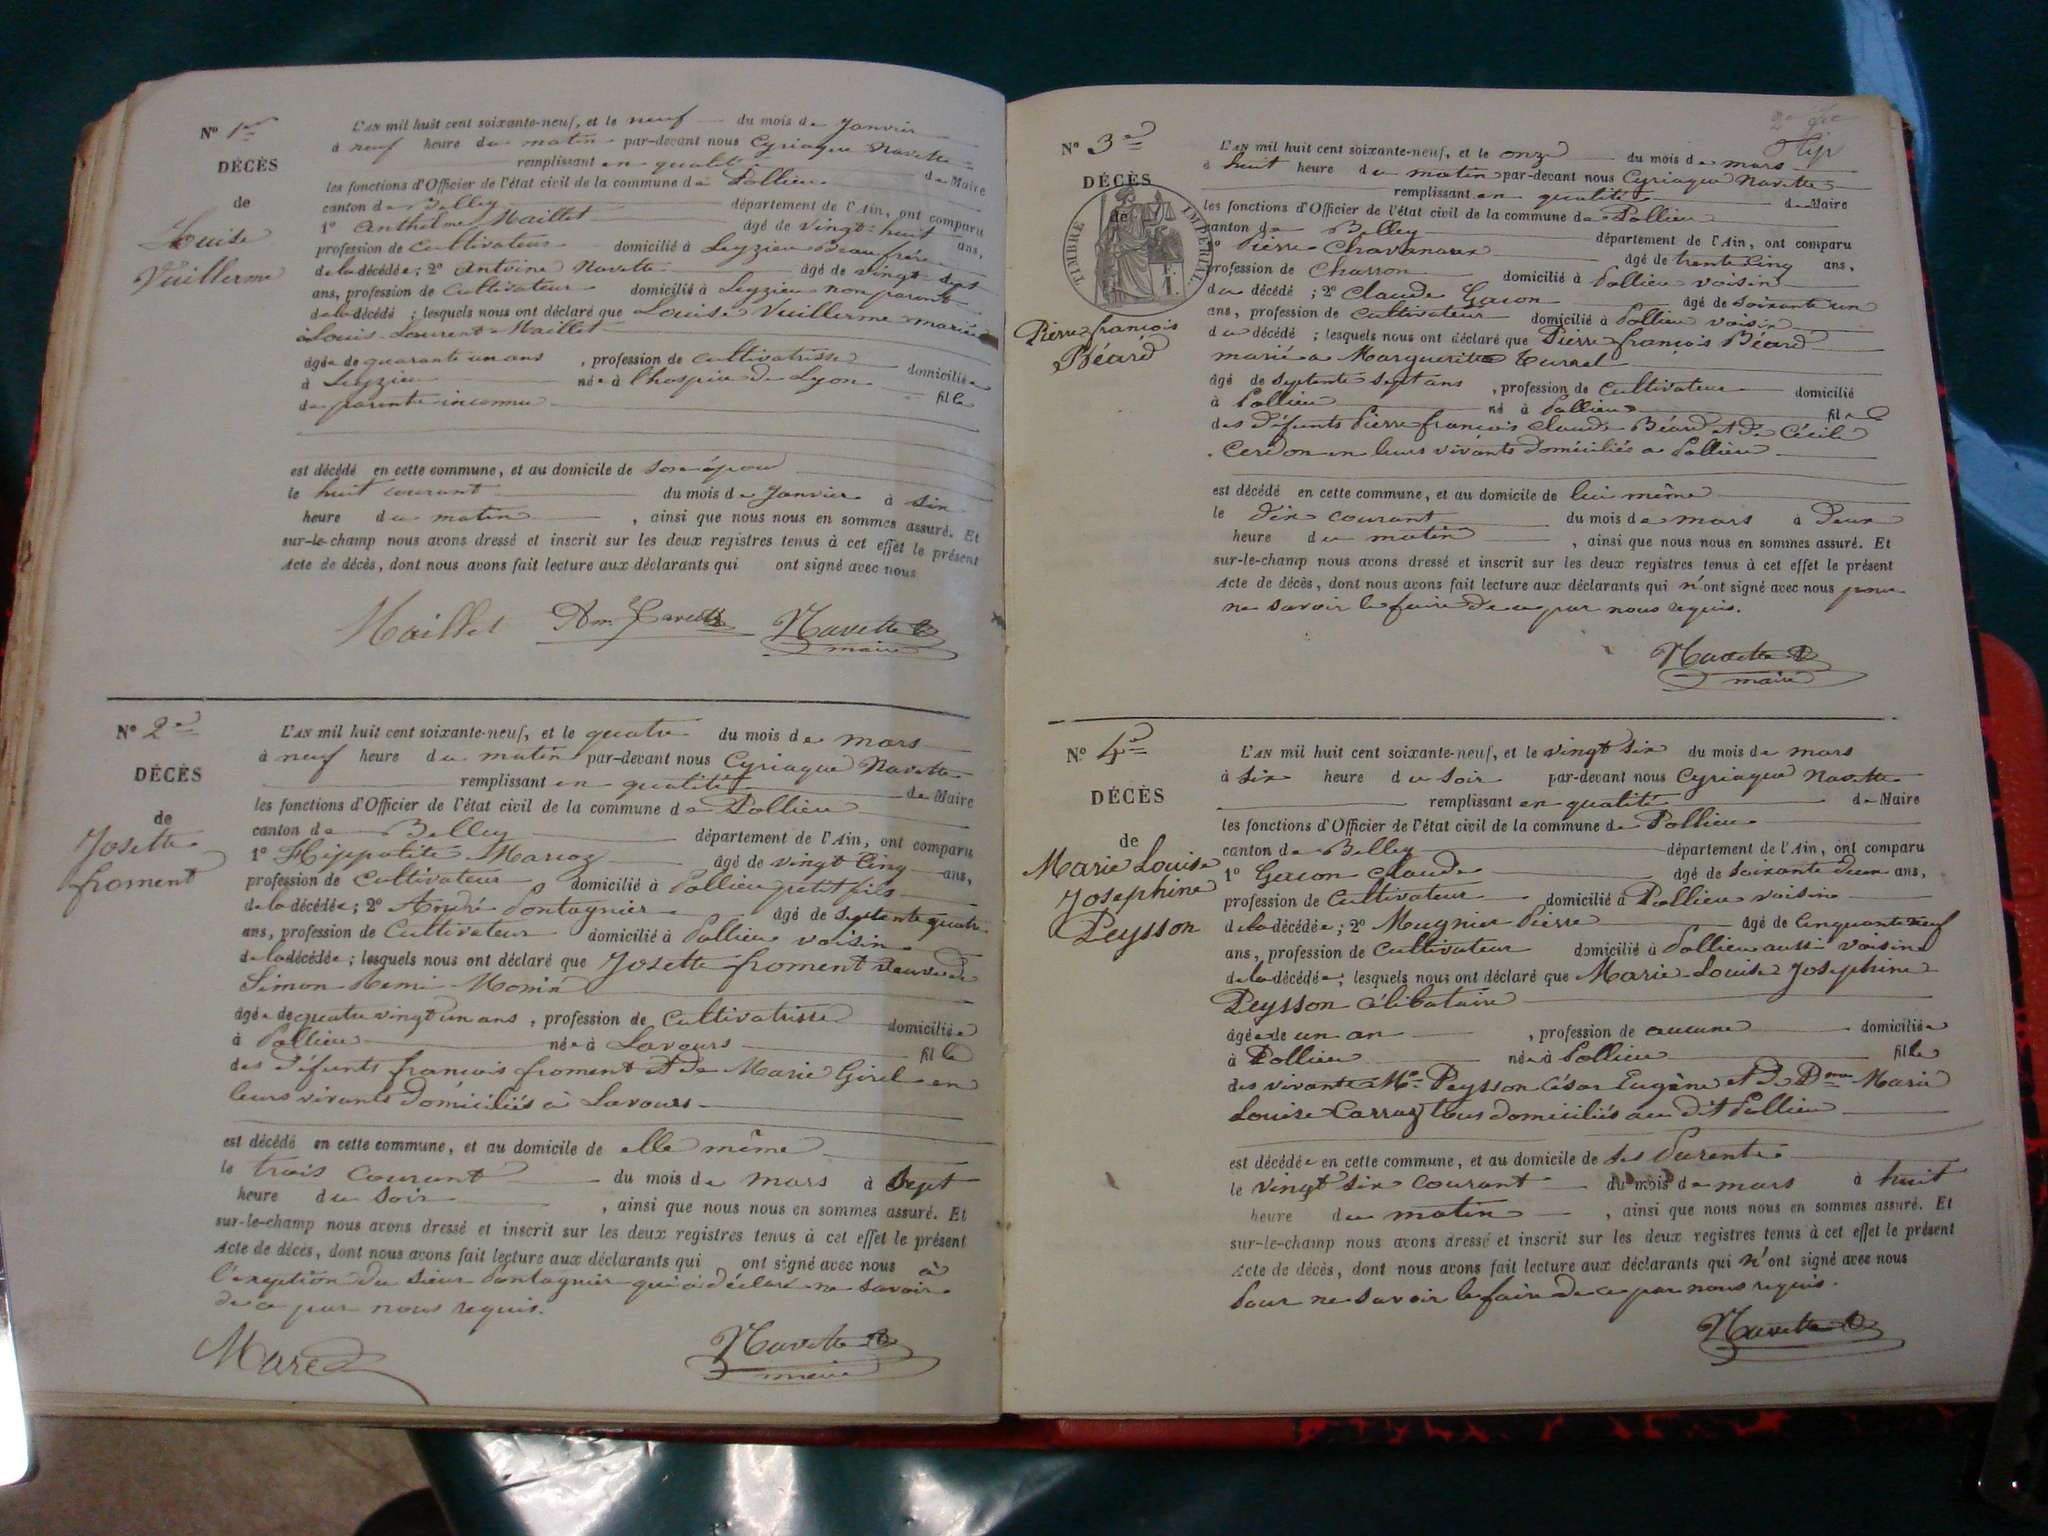 N° 1er
DÉCÈS
de
Louise
Vuillerme
L'AN mil huit cent soixante-neuf, et le neuf du mois de Janvier
à neuf heure du matin par-devant nous Cyriaque Navette
remplissant en qualité de Maire
les fonctions d'Officier de l'état civil de la commune de Pollieu
canton de Belley département de l'Ain, ont comparu
1° Anthelme Maillet âgé de vingt-huit ans,
profession de Cultivateur domicilié à Leyzieu Beau frère
de la décédée ; 2° Antoine Navette âgé de vingt-sept
ans, profession de Cultivateur domicilié à Leyzieu non parent
de la décédé ; lesquels nous ont déclaré que Louise Vuillerme mariée
à Louis Laurent Maillet
âgée de quarante un ans , profession de Cultivatrisse domiciliée
à Leyzieu née à l'hospice de Lyon fille
de parents inconnu
est décédé en cette commune, et au domicile de son époux
le huit courant du mois de Janvier à six
heure du matin , ainsi que nous nous en sommes assuré. Et
sur-le-champ nous avons dressé et inscrit sur les deux registres tenus à cet effet le présent
Acte de décès, dont nous avons fait lecture aux déclarants qui ont signé avec nous
Maillet Navette
maire
N° 2e
DÉCÈS
de
Josette
froment
L'AN mil huit cent soixante-neuf, et le quatre du mois de mars
à neuf heure du matin par-devant nous Cyriaque Navette
remplissant en qualité de Maire
les fonctions d'Officier de l'état civil de la commune de Pollieu
canton de Belley département de l'Ain, ont comparu
1° Hippolite Marcoz âgé de vingt cinq ans,
profession de Cultivateur domicilié à Pollieu petit fils
de la décédée ; 2° André Pontagnier âgé de septente quatre
ans, profession de Cultivateur domicilié à Pollieu voisin
de la décédée ; lesquels nous ont déclaré que Josette froment veuve de
Simon Remi Monin
âgée de quatre vingt un ans , profession de Cultivatrisse domiciliée
à Pollieu née à Lavours fille
des défunts françois froment et de Marie Girel en
leurs vivants domiciliés à Lavours
est décédé en cette commune, et au domicile de elle même
le trois courant du mois de mars à sept
heure du soir , ainsi que nous nous en sommes assuré. Et
sur-le-champ nous avons dressé et inscrit sur les deux registres tenus à cet effet le présent
Acte de décès, dont nous avons fait lecture aux déclarants qui ont signé avec nous à
l'exeption du sieur Pontagnier qui a déclaré ne savoir
de ce par nous requis.
Navette
maire
N° 3e
DÉCÈS
de
TIMBRE IMPÉRIAL
Pierre françois
Béard
L'AN mil huit cent soixante-neuf, et le onze du mois de mars
à huit heure du matin par-devant nous Cyriaque Navette
remplissant en qualité de Maire
les fonctions d'Officier de l'état civil de la commune de Pollieu
canton de Belley département de l'Ain, ont comparu
1° Pierre Chavanaux âgé de trente cinq ans,
profession de Charron domicilié à Pollieu voisin
du décédé ; 2° Claude Gacon âgé de soixante un
ans, profession de Cultivateur domicilié à Pollieu voisin
du décédé ; lesquels nous ont déclaré que Pierre françois Béard
marié a Marguerite Turrel
âgé de septente sept ans , profession de Cultivateur domicilié
à Pollieu né à Pollieu fils
des défunts Pierre françois Claude Béard et de Cécile
Cerdon en leurs vivants domiciliés a Pollieu
est décédé en cette commune, et au domicile de lui même
le dix courant du mois de mars à deux
heure du matin , ainsi que nous nous en sommes assuré. Et
sur-le-champ nous avons dressé et inscrit sur les deux registres tenus à cet effet le présent
Acte de décès, dont nous avons fait lecture aux déclarants qui n'ont signé avec nous pour
ne savoir le faire de ce par nous requis.
Navette
maire
N° 4e
DÉCÈS
de
Marie Louise
Josephine
Peysson
L'AN mil huit cent soixante-neuf, et le vingt six du mois de mars
à six heure du soir par-devant nous Cyriaque Navette
remplissant en qualité de Maire
les fonctions d'Officier de l'état civil de la commune de Pollieu
canton de Belley département de l'Ain, ont comparu
1° Gacon Claude âgé de soixante deux ans,
profession de Cultivateur domicilié à Pollieu voisin
de la décédée ; 2° Mugnier Pierre âgé de Cinquante neuf
ans, profession de Cultivateur domicilié à Pollieu aussi voisin
de la décédée ; lesquels nous ont déclaré que Marie Louise Josephine
Peysson célibataire
âgée de un an , profession de aucune domiciliée
à Pollieu née à Pollieu fille
des vivants Mr Peysson César Eugène et de Dme Marie
Louise Carraz tous domiciliés au dit Pollieu
est décédée en cette commune, et au domicile de ses Parents
le vingt six courant du mois de mars à huit
heure du matin , ainsi que nous nous en sommes assuré. Et
sur-le-champ nous avons dressé et inscrit sur les deux registres tenus à cet effet le présent
Acte de décès, dont nous avons fait lecture aux déclarants qui n'ont signé avec nous
Pour ne savoir le faire de ce par nous requis.
Navette